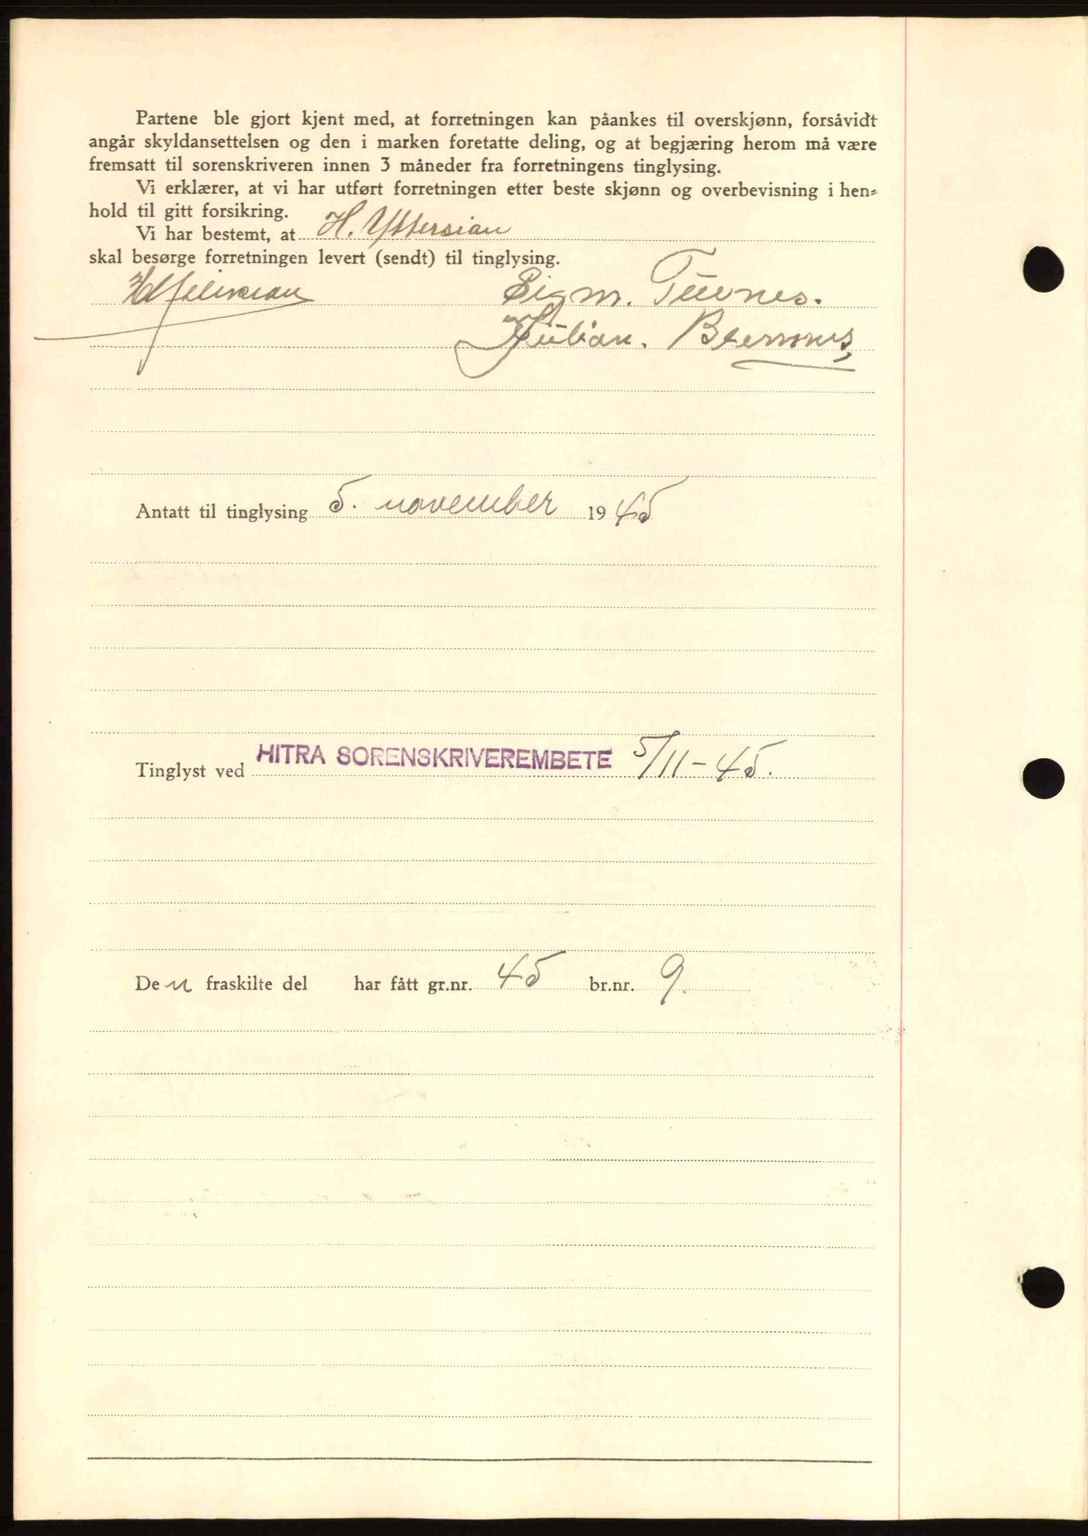 Partene ble gjort kjent med, at forretningen kan påankes til overskjønn, forsåvidt
angår skyldansettelsen og den i marken foretatte deling, og at begjæring herom må være
fremsatt til sorenskriveren innen 3 måneder fra forretningens tinglysing.
Vi erklærer, at vi har utført forretningen etter beste skjønn og overbevisning i hen-
hold til gitt forsikring.
Vi har bestemt, at H. Yttersian
skal besørge forretningen levert (sendt) til tinglysing.
Sigm.
Julian.
Antatt til tinglysing 5. november 1945
Tinglyst ved HITRA SORENSKRIVEREMBETE 5/11-45.
Den fraskilte del har fått gr.nr. 45 br.nr. 9.